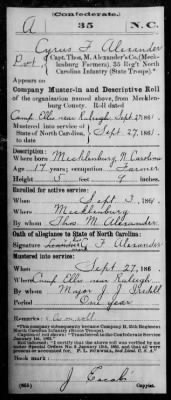 Confederate.
A 35 N.C.
Cyrus F Alexander
Pvt, Capt. Thos. M. Alexander's Co. (Mecklenburg Farmers), 35 Reg't North Carolina Infantry (State Troops).*
Appears on
Company Muster-in and Descriptive Roll
of the organization named above, from Mecklenburg County. Roll dated
Camp Ellis near Raleigh, Sept 27, 1861.
Mustered into service of
State of North Carolina, Sept 27, 1861.
Description:
Where born Mecklenburg N. Carolina
Age 17 years; occupation Farmer
Height 5 feet 9 inches.
Enrolled for active service:
When Sept. 3, 1861.
Where Mecklenburg
By whom Tho M. Alexander
Oath of allegiance to State of North Carolina:
Signature C F Alexander
Mustered into service:
When Sept. 27, 186
Where Camp Ellis near Raleigh
By whom Major J.
Period One year
Remarks:
*This company subsequently became Company H, 35th Regiment North Carolina Infantry (State Troops).
Book mark:
(635) J.
Copyist.